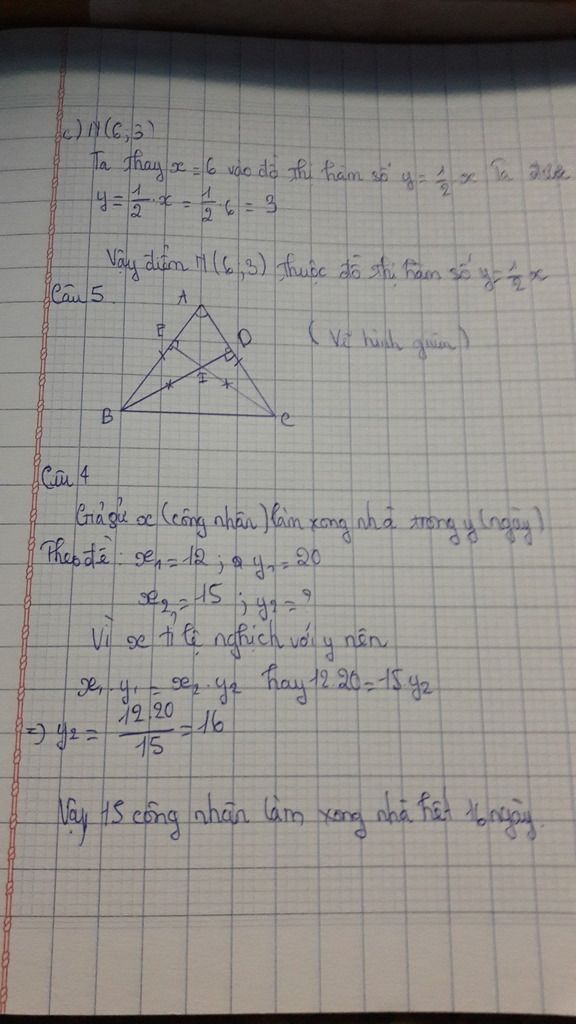 c) N(6,3)
Ta thay x = 6 vào đồ thị hàm số y = 1/2 x Ta được
y = 1/2 . x = 1/2 . 6 = 3
Vậy điểm N(6,3) thuộc đồ thị hàm số y = 1/2 x
Câu 5
A
E D
(Vẽ hình
I
B C
Câu 4
Giả sử x (công nhân) làm xong nhà trong y (ngày)
Theo đề: x₁ = 12 ; y₁ = 20
x₂ = 15 ; y₂ = ?
Vì x tỉ lệ nghịch với y nên
x₁ . y₁ = x₂ . y₂ hay 12.20 = 15 y₂
=> y₂ = 12.20/15 = 16
Vậy 15 công nhân làm xong nhà hết 16 ngày.